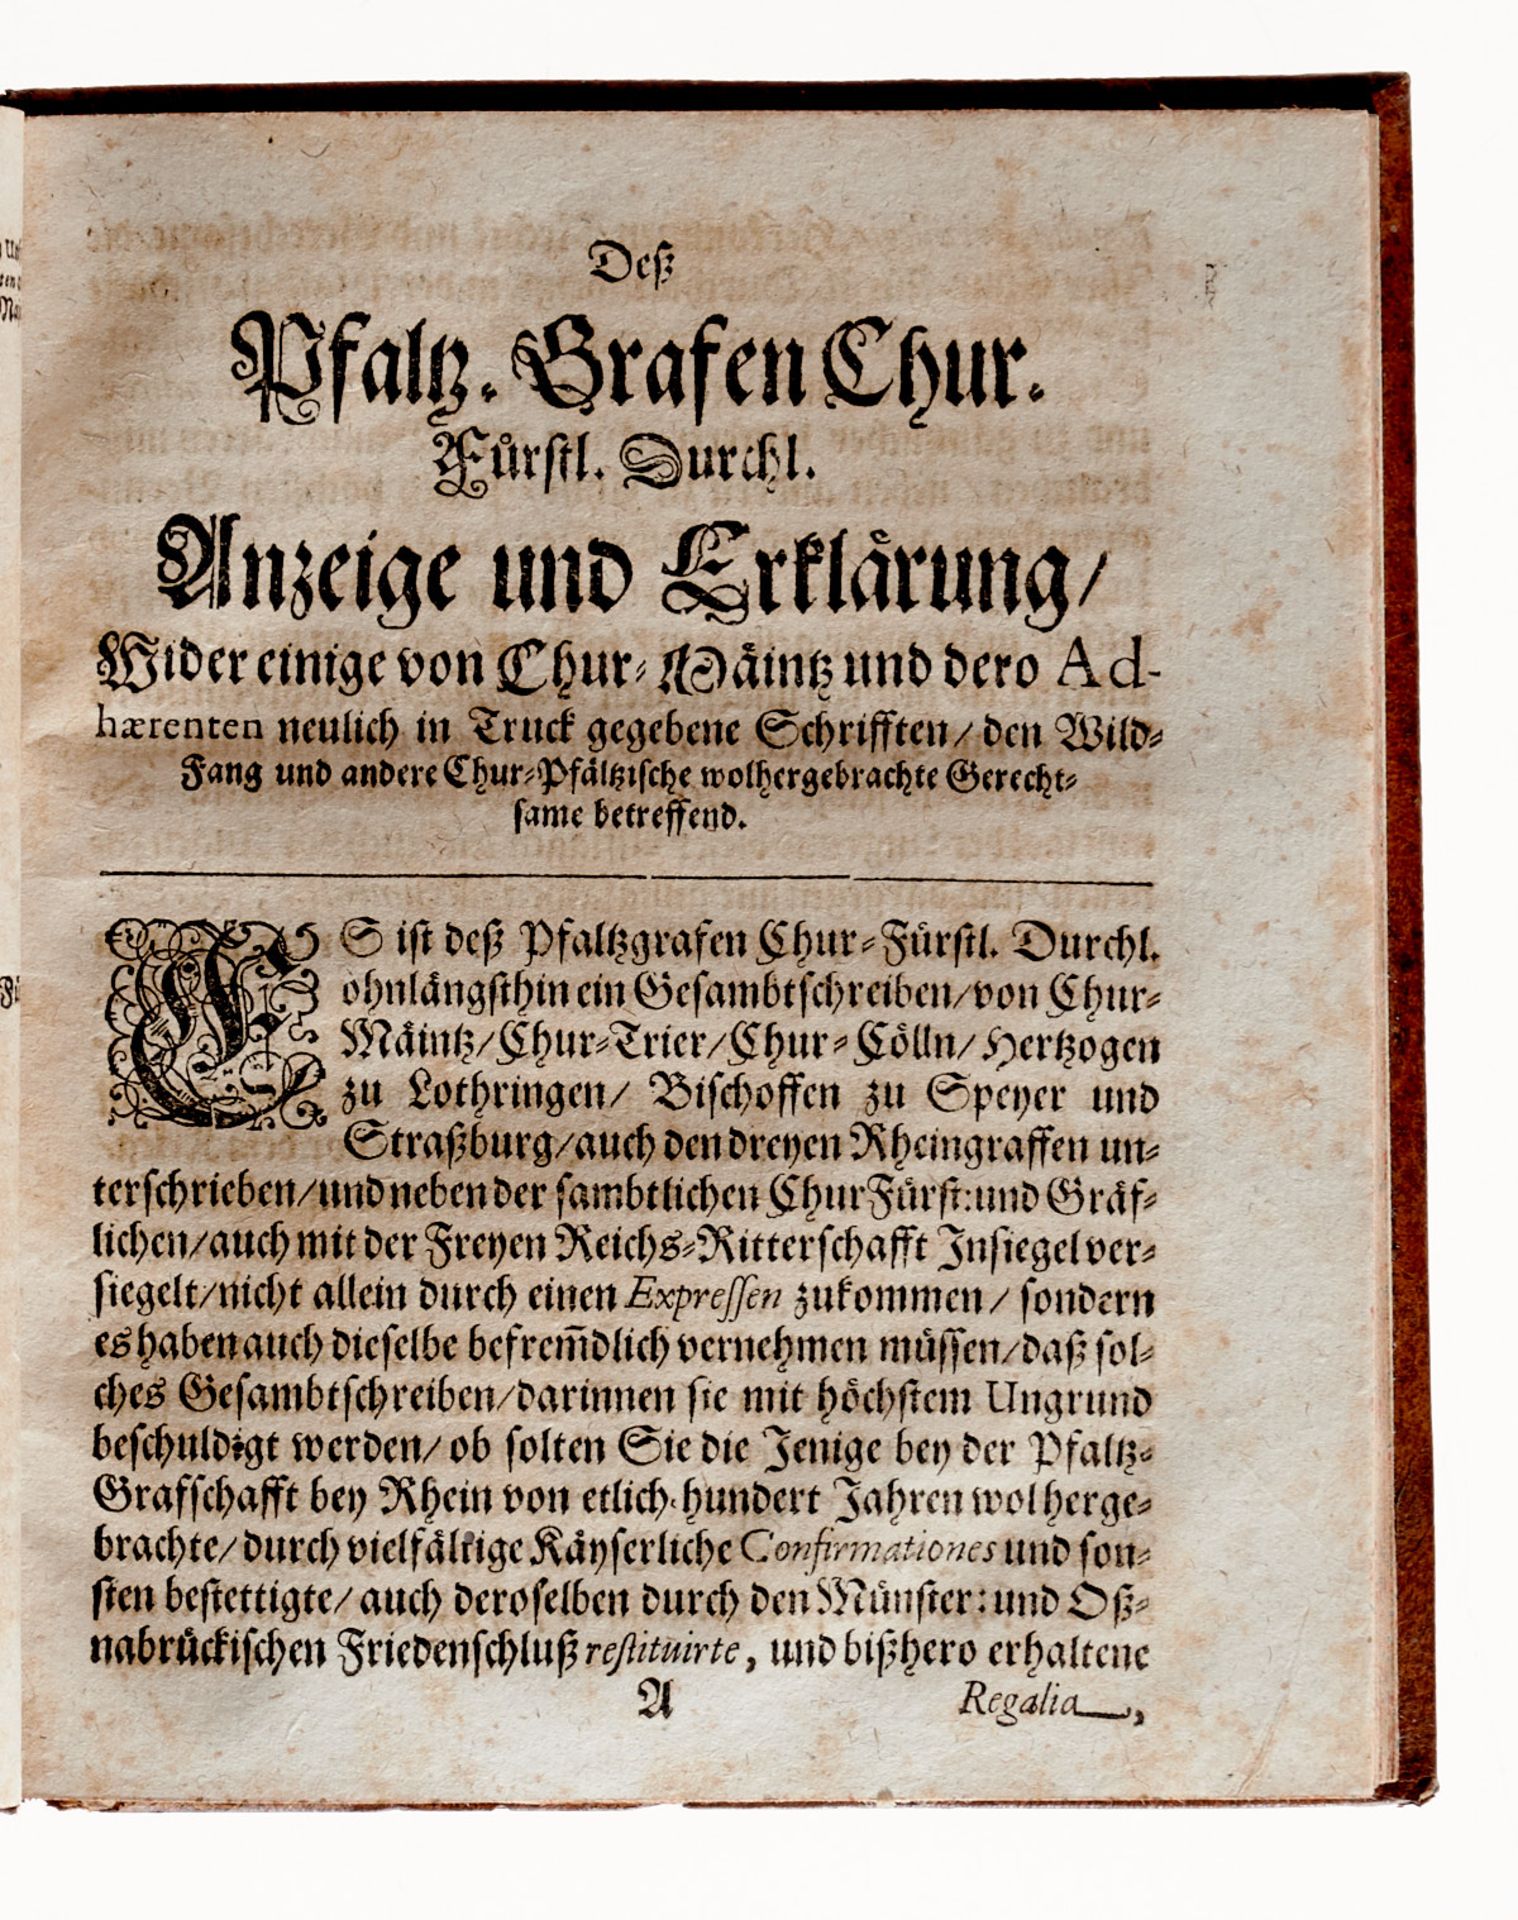 Deß
Pfaltz-Grafen Chur-
Fürstl. Durchl.
Anzeige und Erklärung/
Wider einige von Chur-Mäintz und dero Ad-
hærenten neulich in Truck gegebene Schrifften/ den Wild-
Fang und andere Chur-Pfältzische wolhergebrachte Gerecht-
same betreffend.
ES ist deß Pfaltzgrafen Chur-Fürstl. Durchl.
ohnlängsthin ein Gesambtschreiben/von Chur-
Mäintz/Chur-Trier/Chur-Cölln/Hertzogen
zu Lothringen/ Bischoffen zu Speyer und
Straßburg/auch den dreyen Rheingraffen un-
terschrieben/und neben der sambtlichen ChurFürst: und Gräf-
lichen/auch mit der Freyen Reichs-Ritterschafft Insiegel ver-
siegelt/nicht allein durch einen Expressen zukommen/ sondern
es haben auch dieselbe befrem̃dlich vernehmen müssen/daß sol-
ches Gesambtschreiben/darinnen sie mit höchstem Ungrund
beschuldigt werden/ ob solten Sie die Jenige bey der Pfaltz-
Grafschafft bey Rhein von etlich-hundert Jahren wol herge-
brachte/ durch vielfältige Käyserliche Confirmationes und son-
sten bestettigte/ auch deroselben durch den Münster: und Oß-
nabrückischen Friedenschluß restituirte, und bißhero erhaltene
A Regalia,